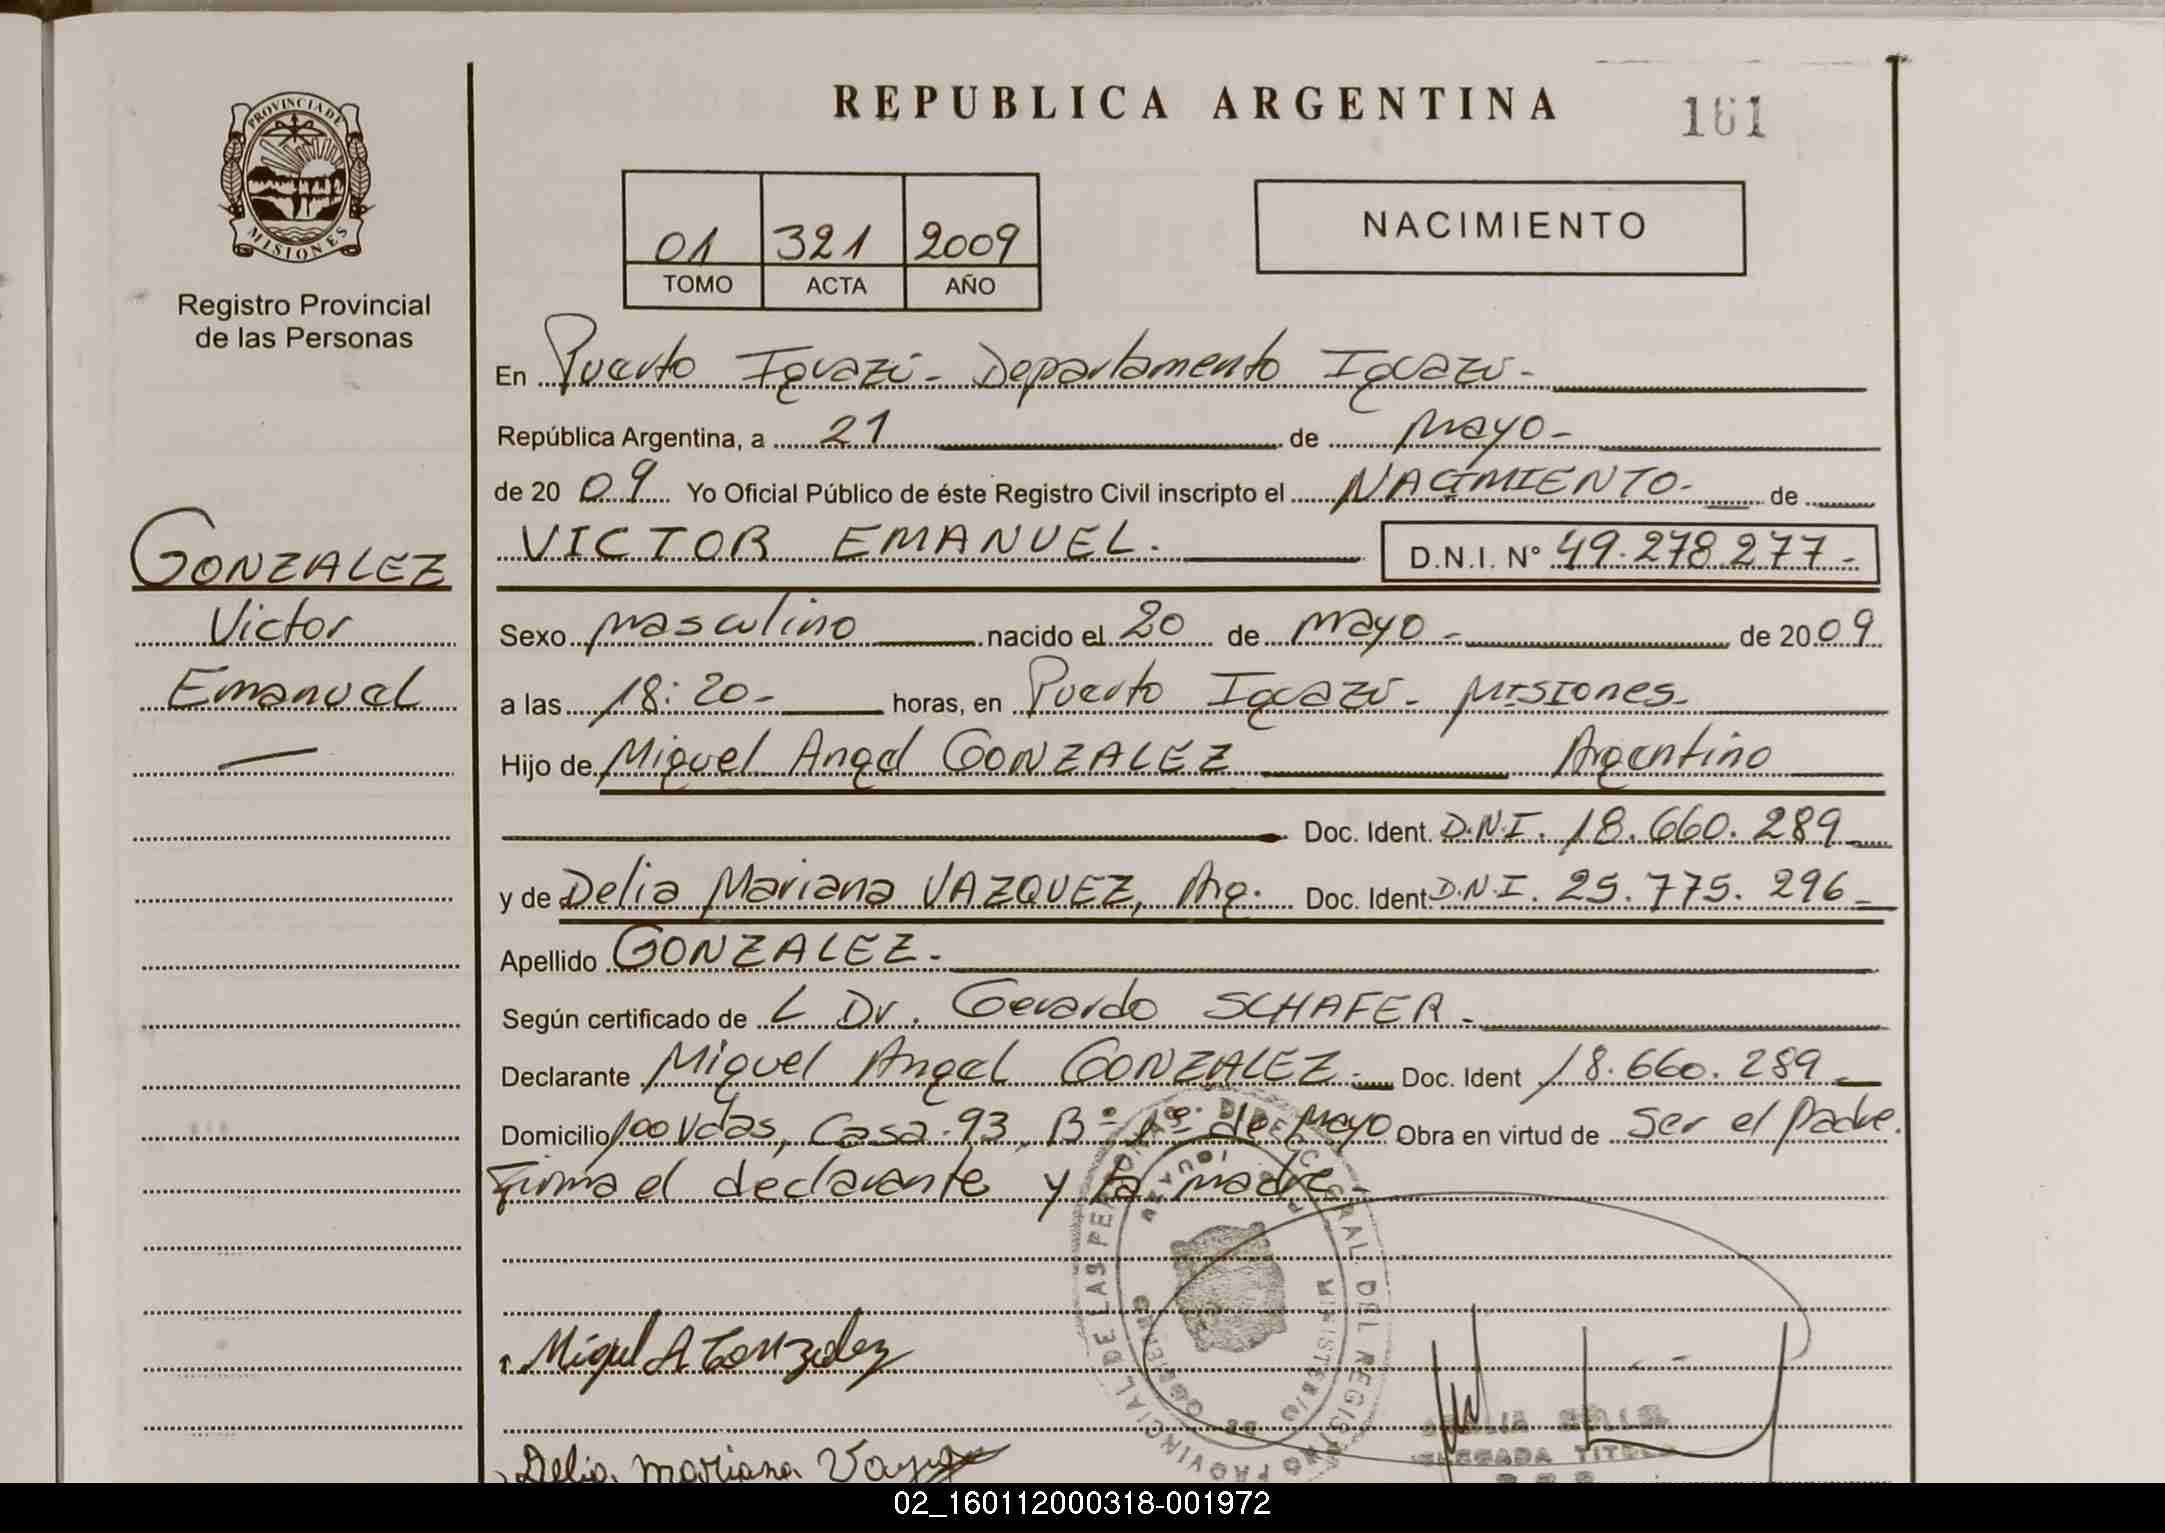 REPUBLICA ARGENTINA
161
PROVINCIA DE
MISIONES
Registro Provincial
de las Personas
01 321 2009
TOMO ACTA AÑO
NACIMIENTO
En Puerto Iguazú - Departamento Iguazú -
República Argentina, a 21 de Mayo -
de 20 09 Yo Oficial Público de éste Registro Civil inscripto el NACIMIENTO - de
VICTOR EMANUEL. D.N.I. Nº 49.278.277 -
GONZALEZ
Victor
Emanuel
Sexo masculino nacido el 20 de mayo - de 20 09
a las 18:20 - horas, en Puerto Iguazú - Misiones -
Hijo de Miguel Angel GONZALEZ Argentino
Doc. Ident. D.N.I. 18.660.289
y de Delia Mariana VAZQUEZ, Arg. Doc. Ident. D.N.I. 25.775.296 -
Apellido GONZALEZ -
Según certificado de L Dr. Gerardo SCHAFER -
Declarante Miguel Angel GONZALEZ - Doc. Ident 18.660.289 -
Domicilio 100 Vdas, Casa 93, Bº 1º de Mayo Obra en virtud de Ser el Padre.
Firma el declarante y la madre -
Miguel A Gonzalez
Delia Mariana
DIREC. GRAL. DEL REGISTRO PROVINCIAL DE LAS PERSONAS
MINISTERIO DE GOBIERNO
TITULAR
02_160112000318-001972